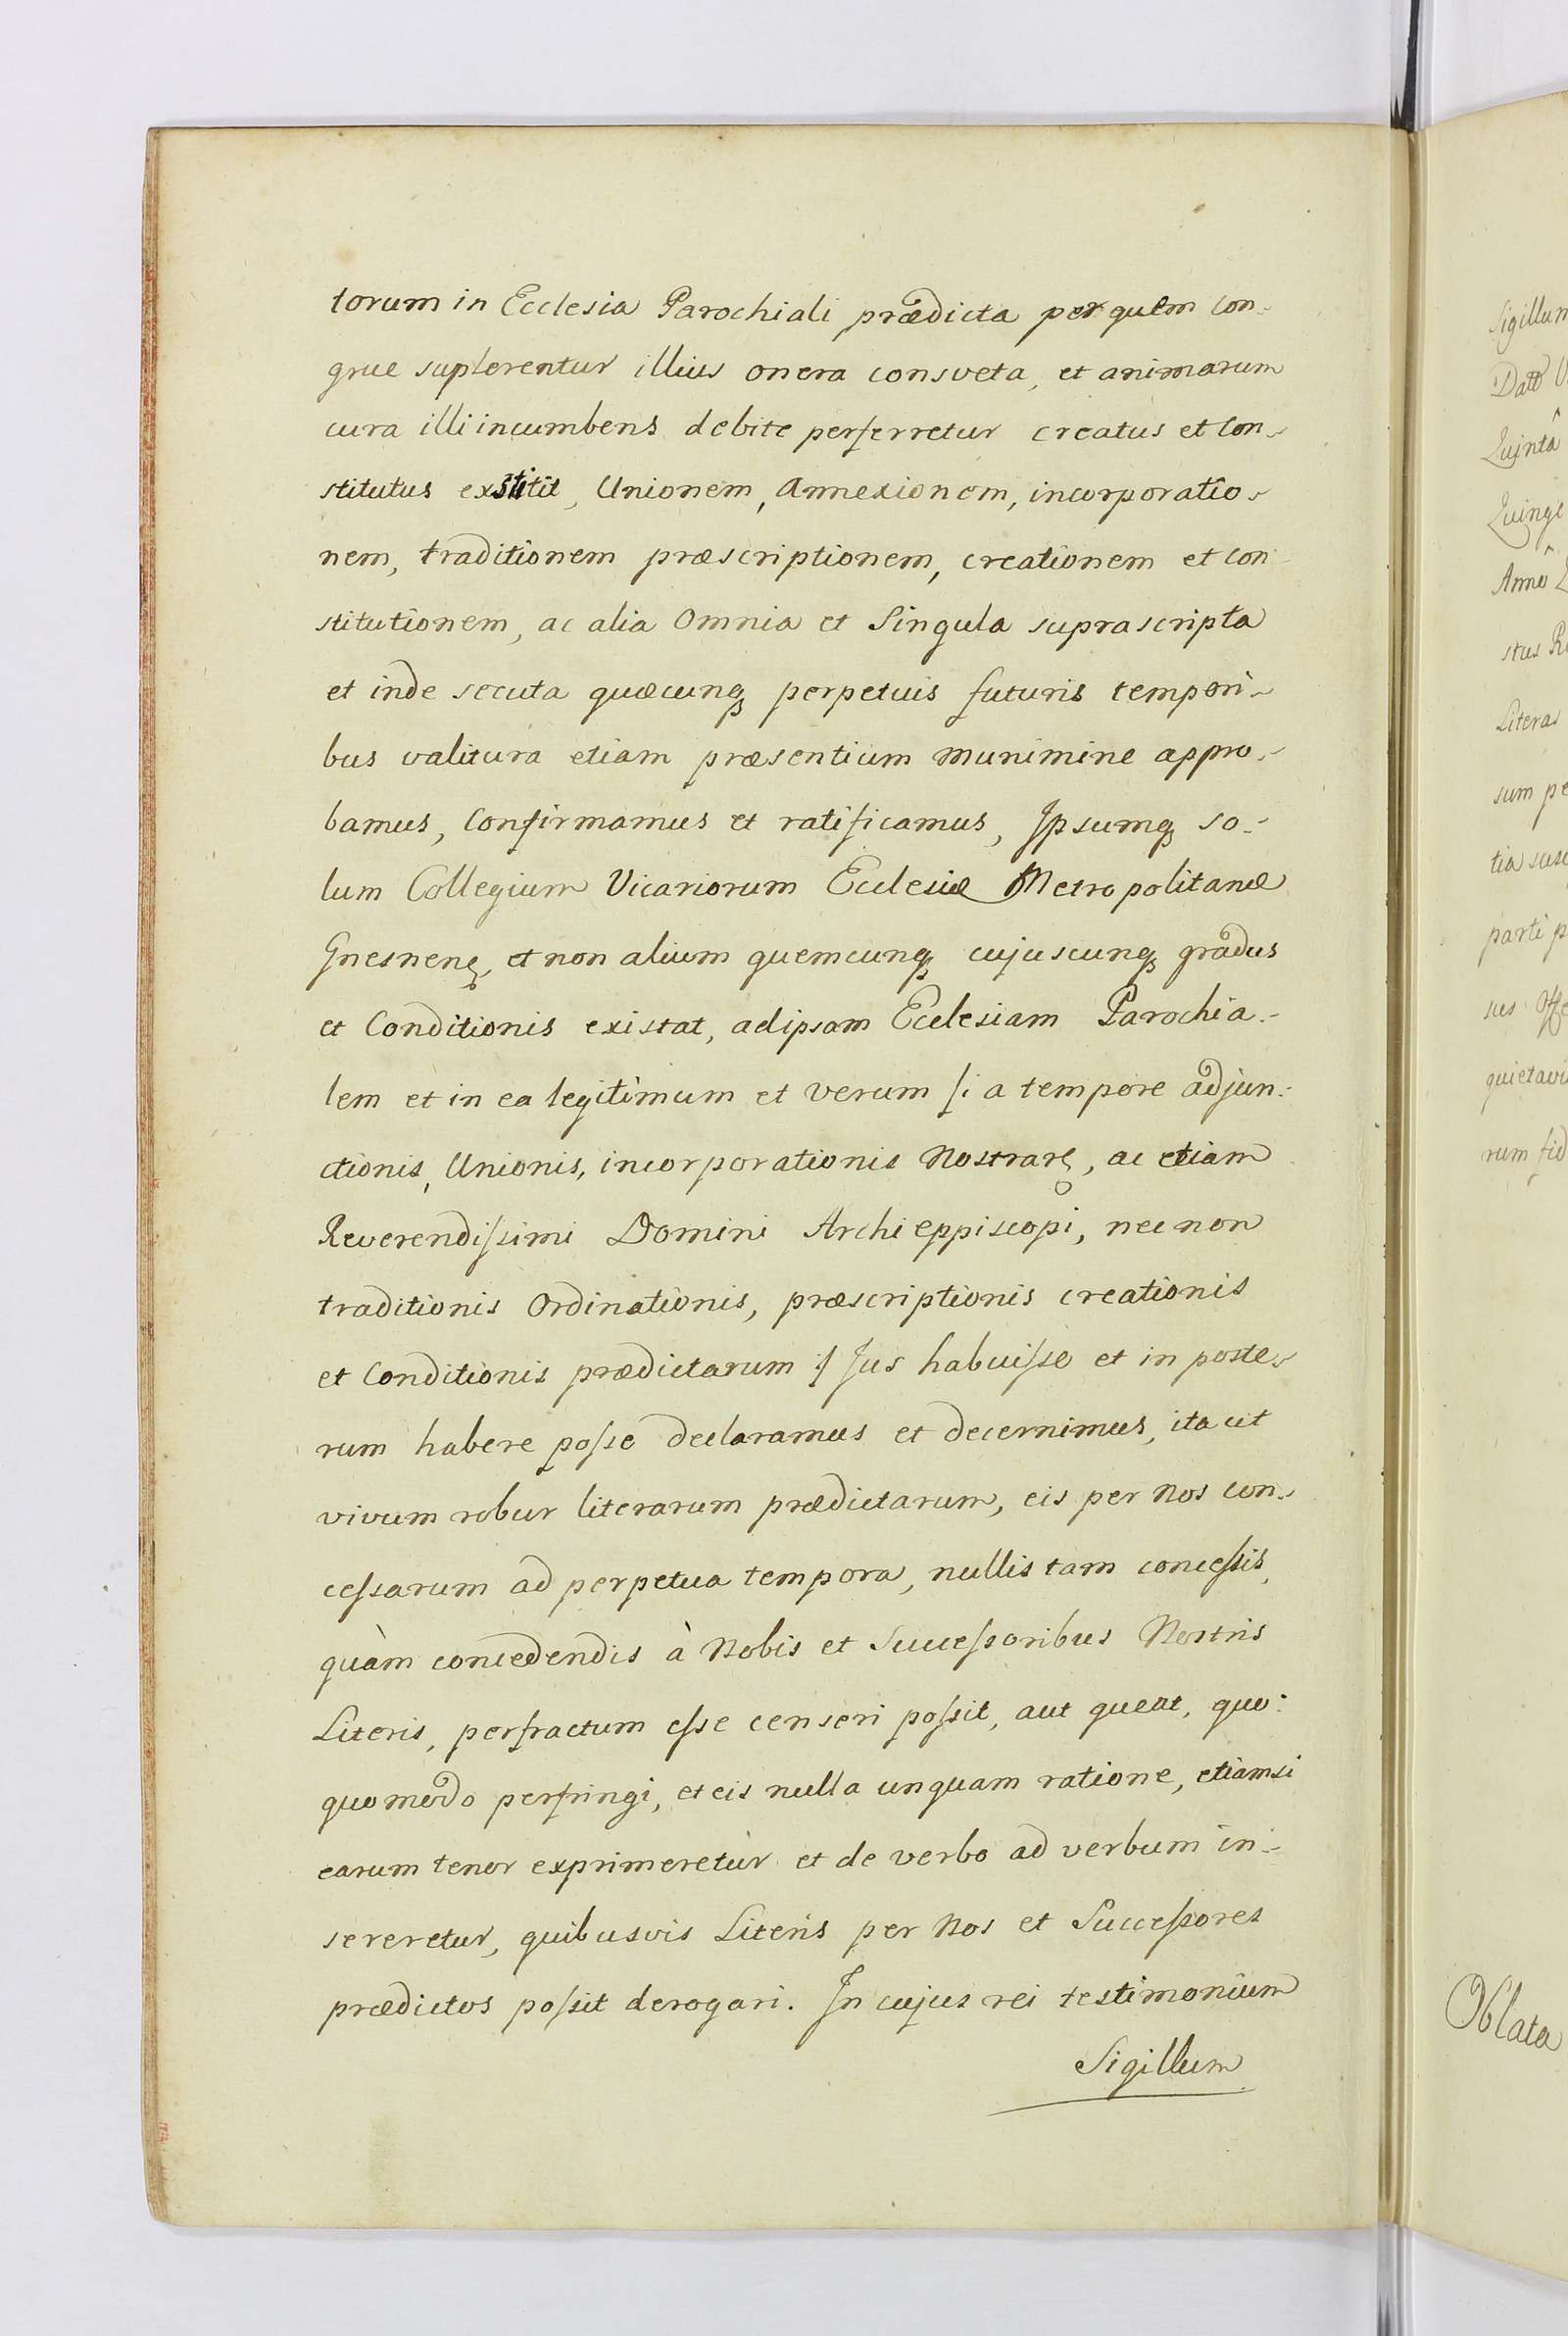 torum in Ecclesia Parochiali prædicta per quem con-
grue suplerentur illius onera consveta, et animarum
cura illi incumbens debite perferretur creatus et con-
stitutus exstitit, Unionem, Annexionem, incorporatio-
nem, traditionem præscriptionem, creationem et con-
stitutionem, ac alia Omnia et Singula suprascripta
et inde secuta quæcunq perpetuis futuris tempori-
bus valitura etiam præsentium munimine appro-
bamus, Confirmamus et ratificamus, Ipsumq so-
lum Collegium Vicariorum Ecclesiæ Metropolitanæ
Gnesnen, et non alium quemcunq cujuscunq gradus
et Conditionis existat, ad ipsam Ecclesiam Parochia-
lem et in ea legitimum et verum /: a tempore adjun-
ctionis, Unionis, incorporationis Nostrar, ac etiam
Reverendiſsimi Domini Archieppiscopi, nec non
traditionis Ordinationis, præscriptionis creationis
et Conditionis prædictarum :/ Jus habuiſse et in poste-
rum habere poſse declaramus et decernimus, ita ut
vivum robur literarum prædictarum, eis per Nos con-
ceſsarum ad perpetua tempora, nullis tam conceſsis,
quàm concedendis à Nobis et Succeſsoribus Nostris
Literis, perfractum eſse censeri poſsit, aut queat, quo-
quomodo perfringi, et eis nulla unquam ratione, etiamsi
earum tenor exprimeretur et de verbo ad verbum in-
sereretur, quibusvis Literis per Nos et Succeſsores
prædictos poſsit derogari. In cujus rei testimonium
Sigillum
Sigillum
Quinta
Quinge
Anno
Literas
sum pe
tia susc
parti p
quietavi
rum fid
Oblata